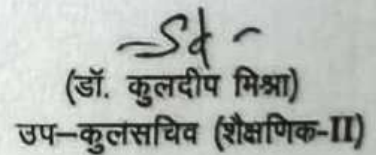 -Sd-
(डॉ. कुलदीप मिश्रा)
उप–कुलसचिव (शैक्षणिक-II)